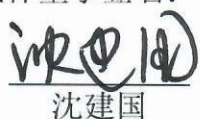 沈建国
沈建国